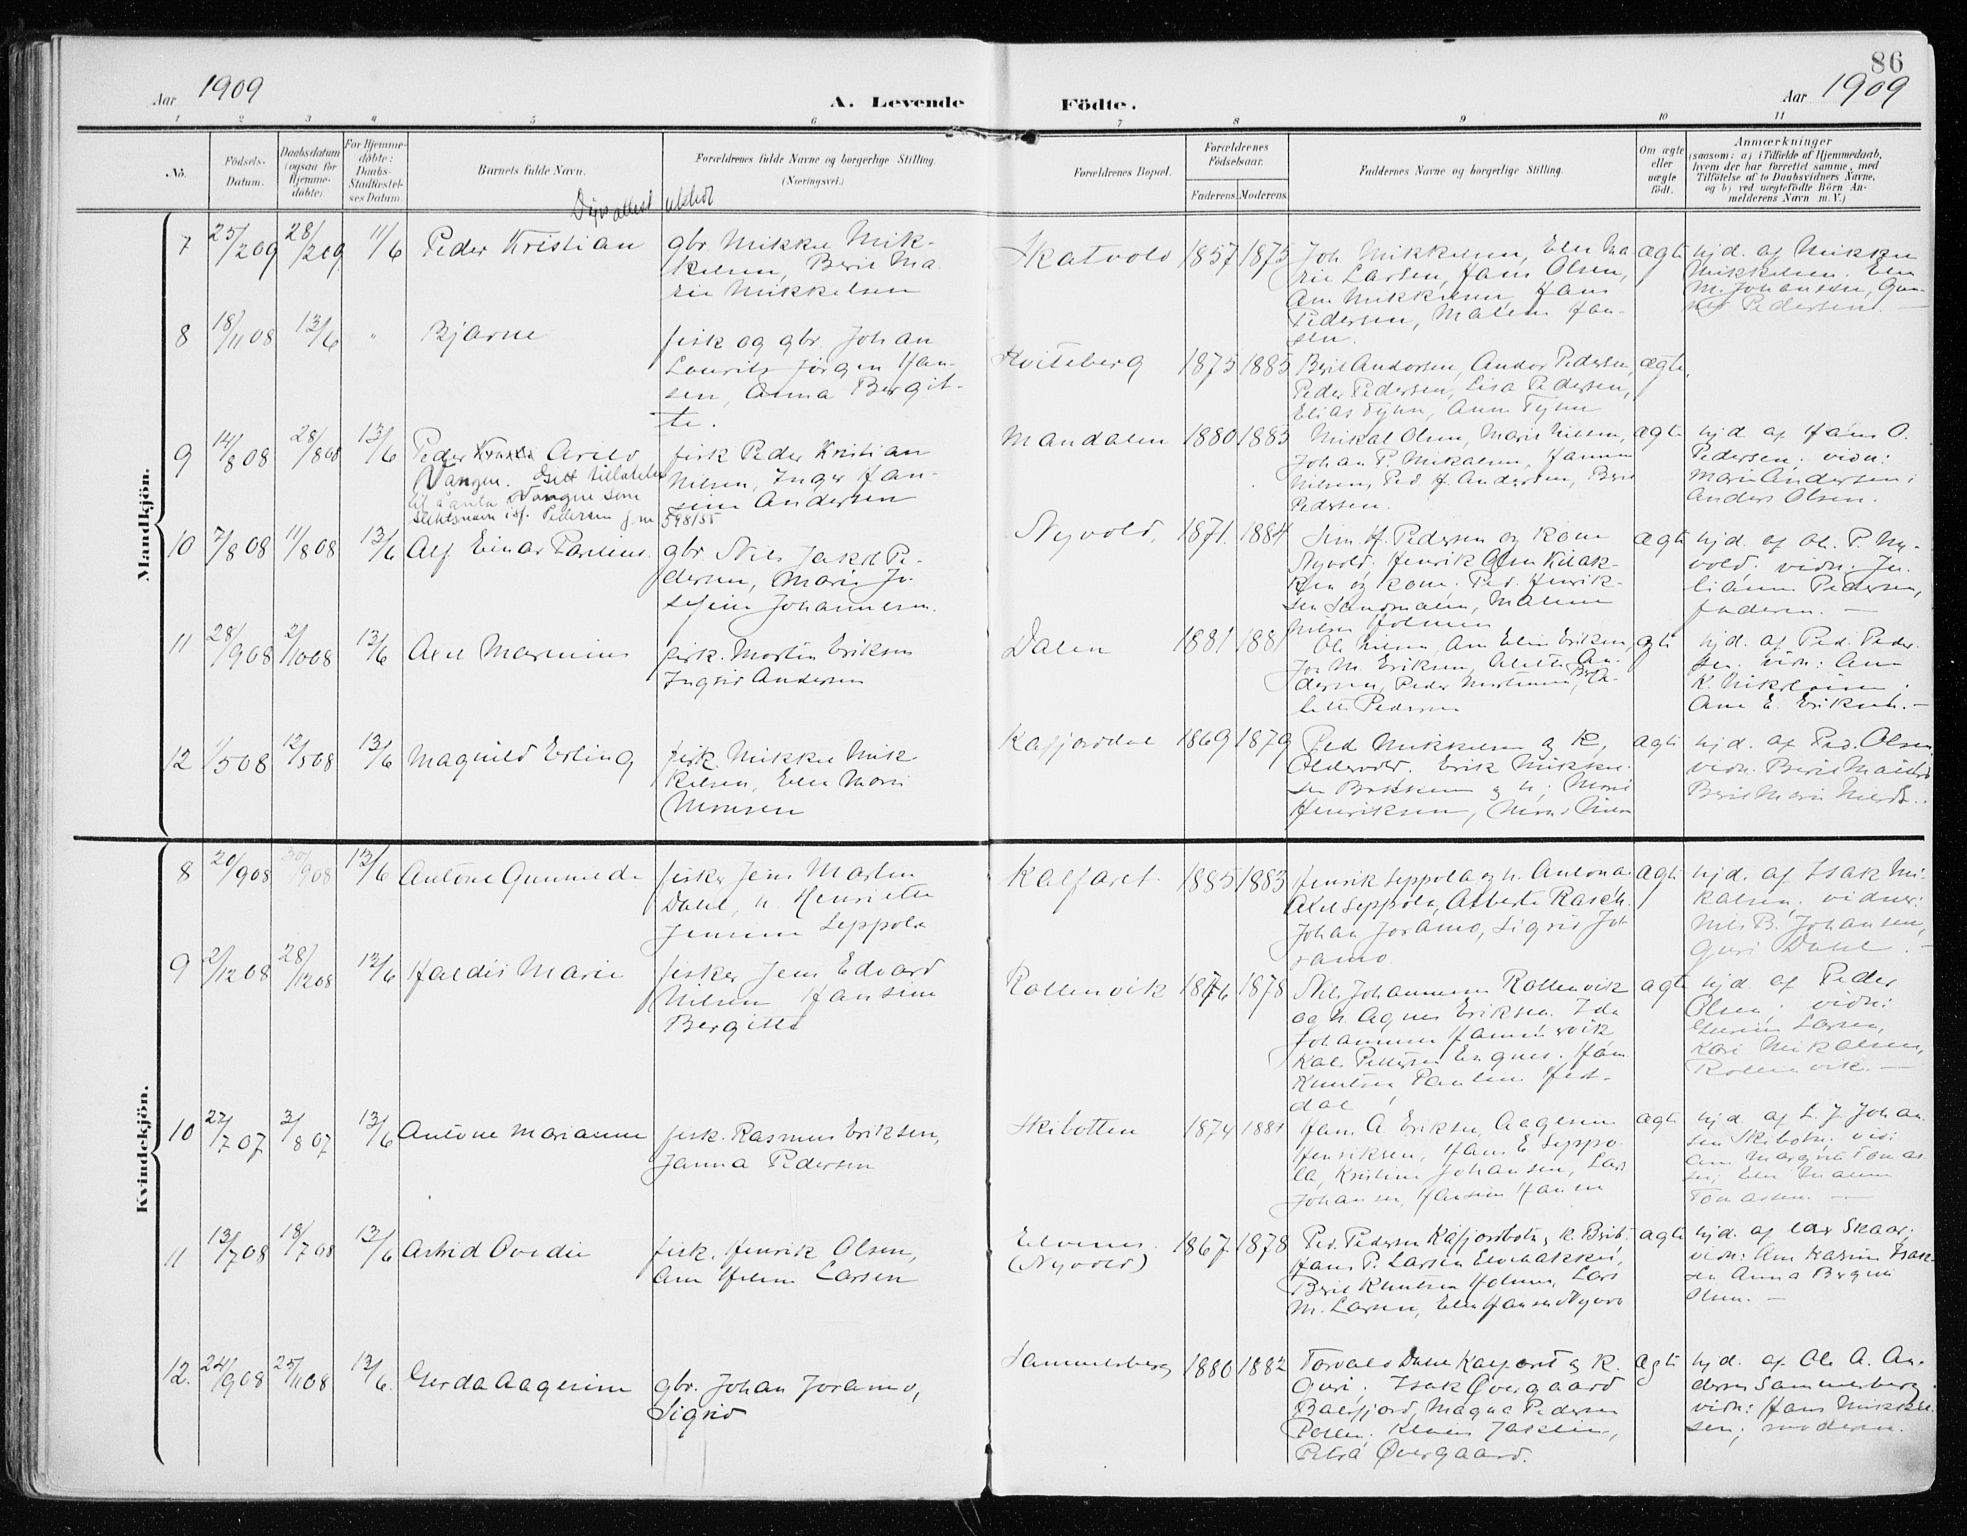 86
Aar 1909
A. Levende Födte.
Aar 1909
1 2 3 4 5 6 7 8 9 10 11
No.
Födsels-Datum.
Daabsdatum (ogsaa for Hjemmedöbte)
For Hjemmedöbte: Daabs-Stadfæstelses Datum.
Barnets fulde Navn.
Forældrenes fulde Navne og borgerlige Stilling. (Næringsvei.)
Forældrenes Bopæl.
Forældrenes Födselsaar.
Faderens. Moderens.
Faddernes Navne og borgerlige Stilling.
Om ægte eller uægte födt.
Anmærkninger
(saasom: a) i Tilfælde af Hjemmedaab, hvem der har forrettet samme, med Tilföielse af to Daabsvidners Navne, og b) ved uægtefödte Börn Anmelderens Navn m. V.)
Mandkjön.
7 25/2 09 28/2 09 11/6 Peder Kristian
gbr. Mikkel Mik-
kelsen, Berit Ma-
rie Mikkelsen
Skatvold 1857 1875
Joh. Mikkelsen, Elen Ma
rie Larsen, Hans Olsen,
Ane Mikkelsen, Hans
Pedersen, Malene Han-
sen.
ægte
hjd. af Mikkel
Mikkelsen. Elen
M. Johansen, Gun-
Pedersen. —
8 18/11 08 13/6 " Bjarne
fisk og gbr. Johan
Laurits Jörgen Han-
sen, Anna Bergit-
te.
Kviteberg 1875 1885
Berit Andersen, Andor Pedersen,
Peder Pedersen, Lisa Pedersen,
Elias Fyhn, Anne Fyhn
ægte.
9 14/8 08 28/8 08 13/6 Peder Arild
Vangen. Gitt tillatelse
til å anta Vangen som
slektsnavn i st. Pedersen j.nr 598/55
fisk Peder Kristian
Nilsen, Inger Han-
sine Andersen
Mandalen 1880 1883
Mikal Olsen, Marie Nilsen,
Johan P. Mikalsen, Hanna
Nilsen, Ped. H. Andersen, Berit
Pedersen.
ægte
hjd. af Hans O.
Pedersen. vidn:
Marie Andersen;
Anders Olsen.
10 7/8 08 11/8 08 13/6 Alf Einar Paulius.
gbr. Nils Jakob Pe-
dersen, Marie Jo-
sefine Johannesen.
Nyvold. 1871 1884
Sim. H. Pedersen og kone
Nyvold. Henrik Olsen
ken og kone. Ped. Henrik-
sen Sandmalen, Malene
Nilsen Holmen
ægte
hjd. af Ol. P. Ny-
vold. vidn: Ju-
lianne Pedersen,
faderen. —
11 28/9 08 2/10 08 13/6 Axel Marenius
fisk. Martin Eriksen
Ingrid Andersen
Dalen 1881 1881
Ole Nilsen, Ane Elen Eriksen,
Joh. M. Eriksen, An-
dersen, Peder Mortensen,
Pedersen
ægte
hjd. af Ped. Peder-
sen. vidn: Ane
K. Mikkelsen;
Ane E. Eriksen. —
12 1/5 08 12/5 08 13/6 Magnild Erling
fisk. Mikkel Mik
kelsen, Elen Marie
Monsen
Kafjorddal 1869 1879
Ped. Mikkelsen og k,
Oldervold. Erik Mikkel-
sen Bakken og h; Marie
Henriksen, Mons Nilsen
ægte
hjd. af Ped. Olsen
vidn. Berit
Berit Marie
Kvindekjön.
8 20/9 08 30/9 08 13/6 Antone Gunnelde
fisker Jens Martin
Dahl, h. Henriette
Jensine Seppola
Kalfaret. 1885 1883
Henrik Seppola og h. Antona
Axel Seppola, Alberte Rasch.
Johan Joramo, Sigrid Jo-
ramo.
ægte
hjd. af Isak Mi-
kalsen; vidner:
Nils B. Johansen,
Guri Dahl. —
9 2/12 08 28/12 08 13/6 Haldis Marie
fisker Jens Edvard
Nilsen Hansine
Bergitte
Rollenvik 1876 1878
Nils Johannesen Rollenvik
og h. Agnes Eriksen. Ida
Johannesen
Kal. Pedersen Engnes. Hans
Knutsen Pauline
dal
ægte
hjd. af Peder
Olsen. vidn:
Larsen,
Kari Mikalsen,
Rollenvik. —
10 27/7 07 3/8 07 13/6 Antone Marianne
fisk. Rasmus Eriksen,
Janna Pedersen
Skibotten 1874 1881
Hans A. Eriksen, Aagesen
Henriksen, Hans E. Seppo-
la, Kristine Johansen, Lars
Johansen, Hansine Hansen
ægte
hjd. af L. J. Johan
sen Skibotn. vid:
Ane Margrit Tomas
sen; Elen Malene
Tomassen. —
11 13/7 08 18/7 08 13/6 Astrid Ovedie
fisk. Henrik Olsen,
Ane Helene Larsen
Elvenes.
(Nyvold)
1867 1878
Ped. Pedersen Kafjordbotn og k. Brit.
Hans P. Larsen Elvebakken,
Berit Knutsen Holmen, Lars
M. Larsen, Elen Hansen Nyvold
ægte
hjd. af Lars Skaar;
vidn: Ane Karine Isak-
sen Anna Bergitte
Olsen. —
12. 24/9 08 25/11 08 13/6. Gerda Aagesine
gbr. Johan Joramo,
Sigrid
Sammelsberg 1880 1882
Torvald Dahl Kalfaret og k.
Guri; Isak Øvergaard
Balsfjord, Magna Pedersen
Pollen. Jaklin,
Petra Øvergaard.
ægte
hjd. af Ole A. An-
dersen Sammelsberg.
vidn: Hans Mikkel-
sen; moderen.